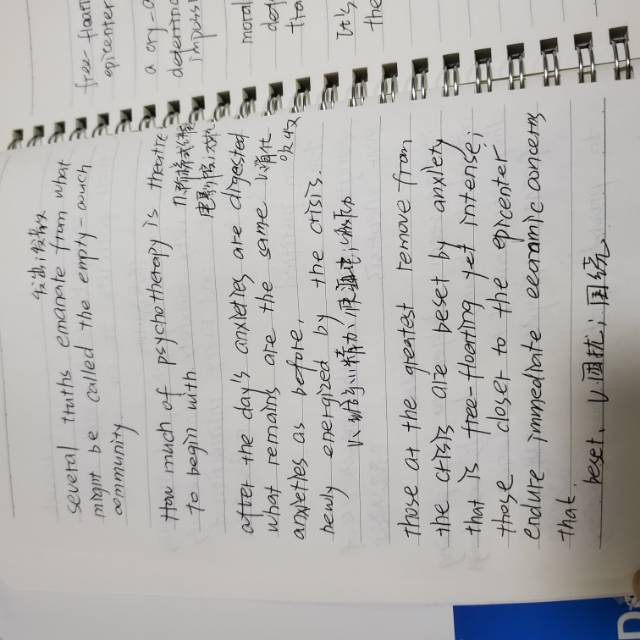 several truths emanate from what
might be called the empty-couch
community.
How much of psychotherapy is theatre
to begin with.
after the day's anxieties are digested
what remains are the same
anxieties as before,
newly energized by the crisis.
those at the greatest remove from
the crisis are beset by anxiety
that is free-floating yet intense;
those closer to the epicenter
endure immediate economic concerns
that.
beset. v. 困扰; 围绕
free-floa
epicenter
a org-a
determina
imperi
moral
det
tra
It's
the